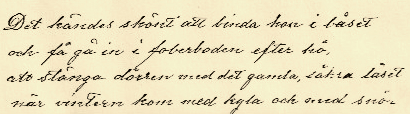 Det kändes skönt att binda kon i båset
och få gå in i foderboden efter hö,
att stänga dörren med det gamla, säkra låset
när vintern kom med kyla och med snö.